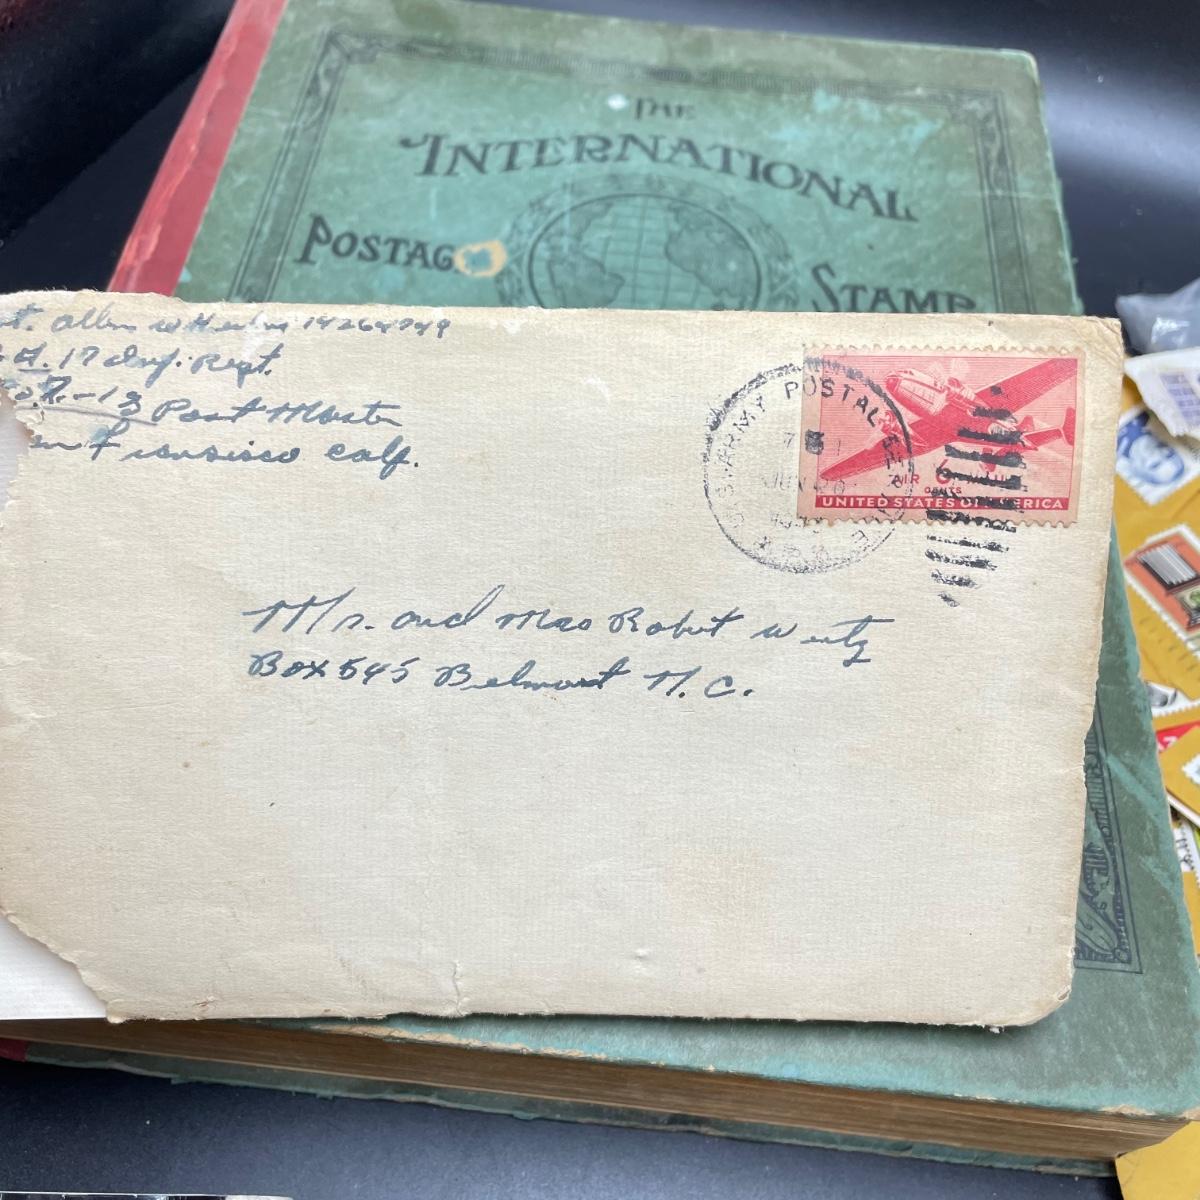 THE
INTERNATIONAL
POSTAG
STAMP
Allen W 14264749
17 Inf. Regt.
Post Master
Fransisco Calf.
U.S. ARMY POSTAL SERVICE
JUN
A.P.O.
AIR MAIL
6
CENTS
UNITED STATES OF AMERICA
Mr. and Mrs Robert Wentz
Box 545 Belmont N. C.